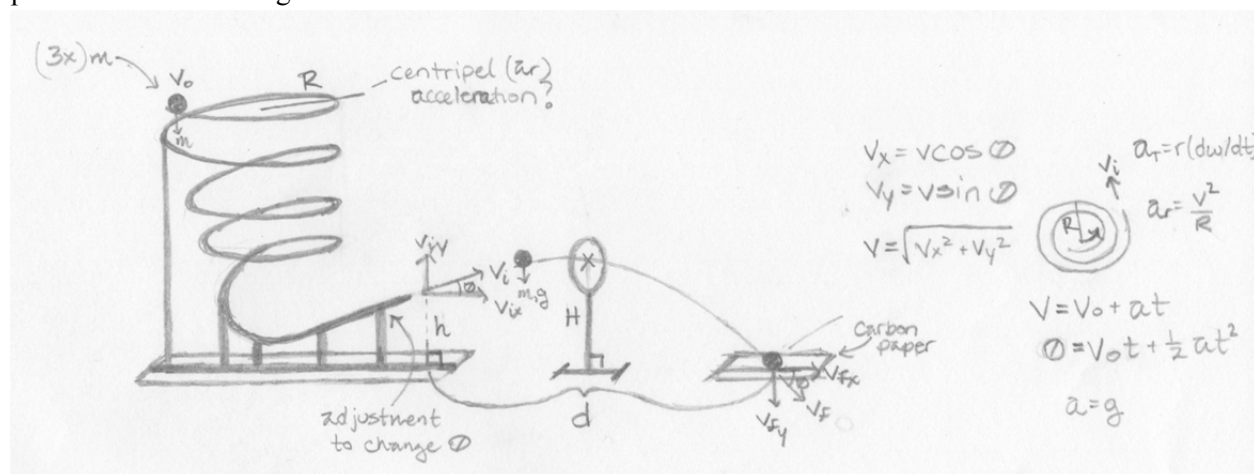 (3x)m
V₀
m
R
centripel (ar)
acceleration?
Viy
Vi
Vix
Ø
h
m,g
H
d
adjustment
to change Ø
carbon
paper
Vfx
Vf
Vfy
Vx = Vcos Ø
Vy = Vsin Ø
V = √Vx² + Vy²
Vi
R
aT = r(dω/dt)
ar = V²/R
V = V₀ + at
Ø = V₀t + ½at²
a = g